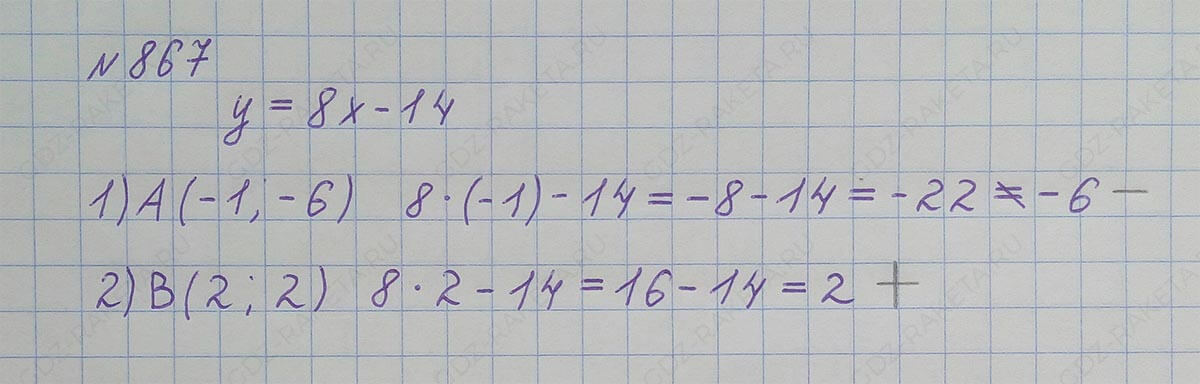 № 867
y = 8x - 14
1) A (-1; -6) 8 · (-1) - 14 = -8 - 14 = -22 ≠ -6 —
2) B (2; 2) 8 · 2 - 14 = 16 - 14 = 2 +
GDZ-RAKETA.RU